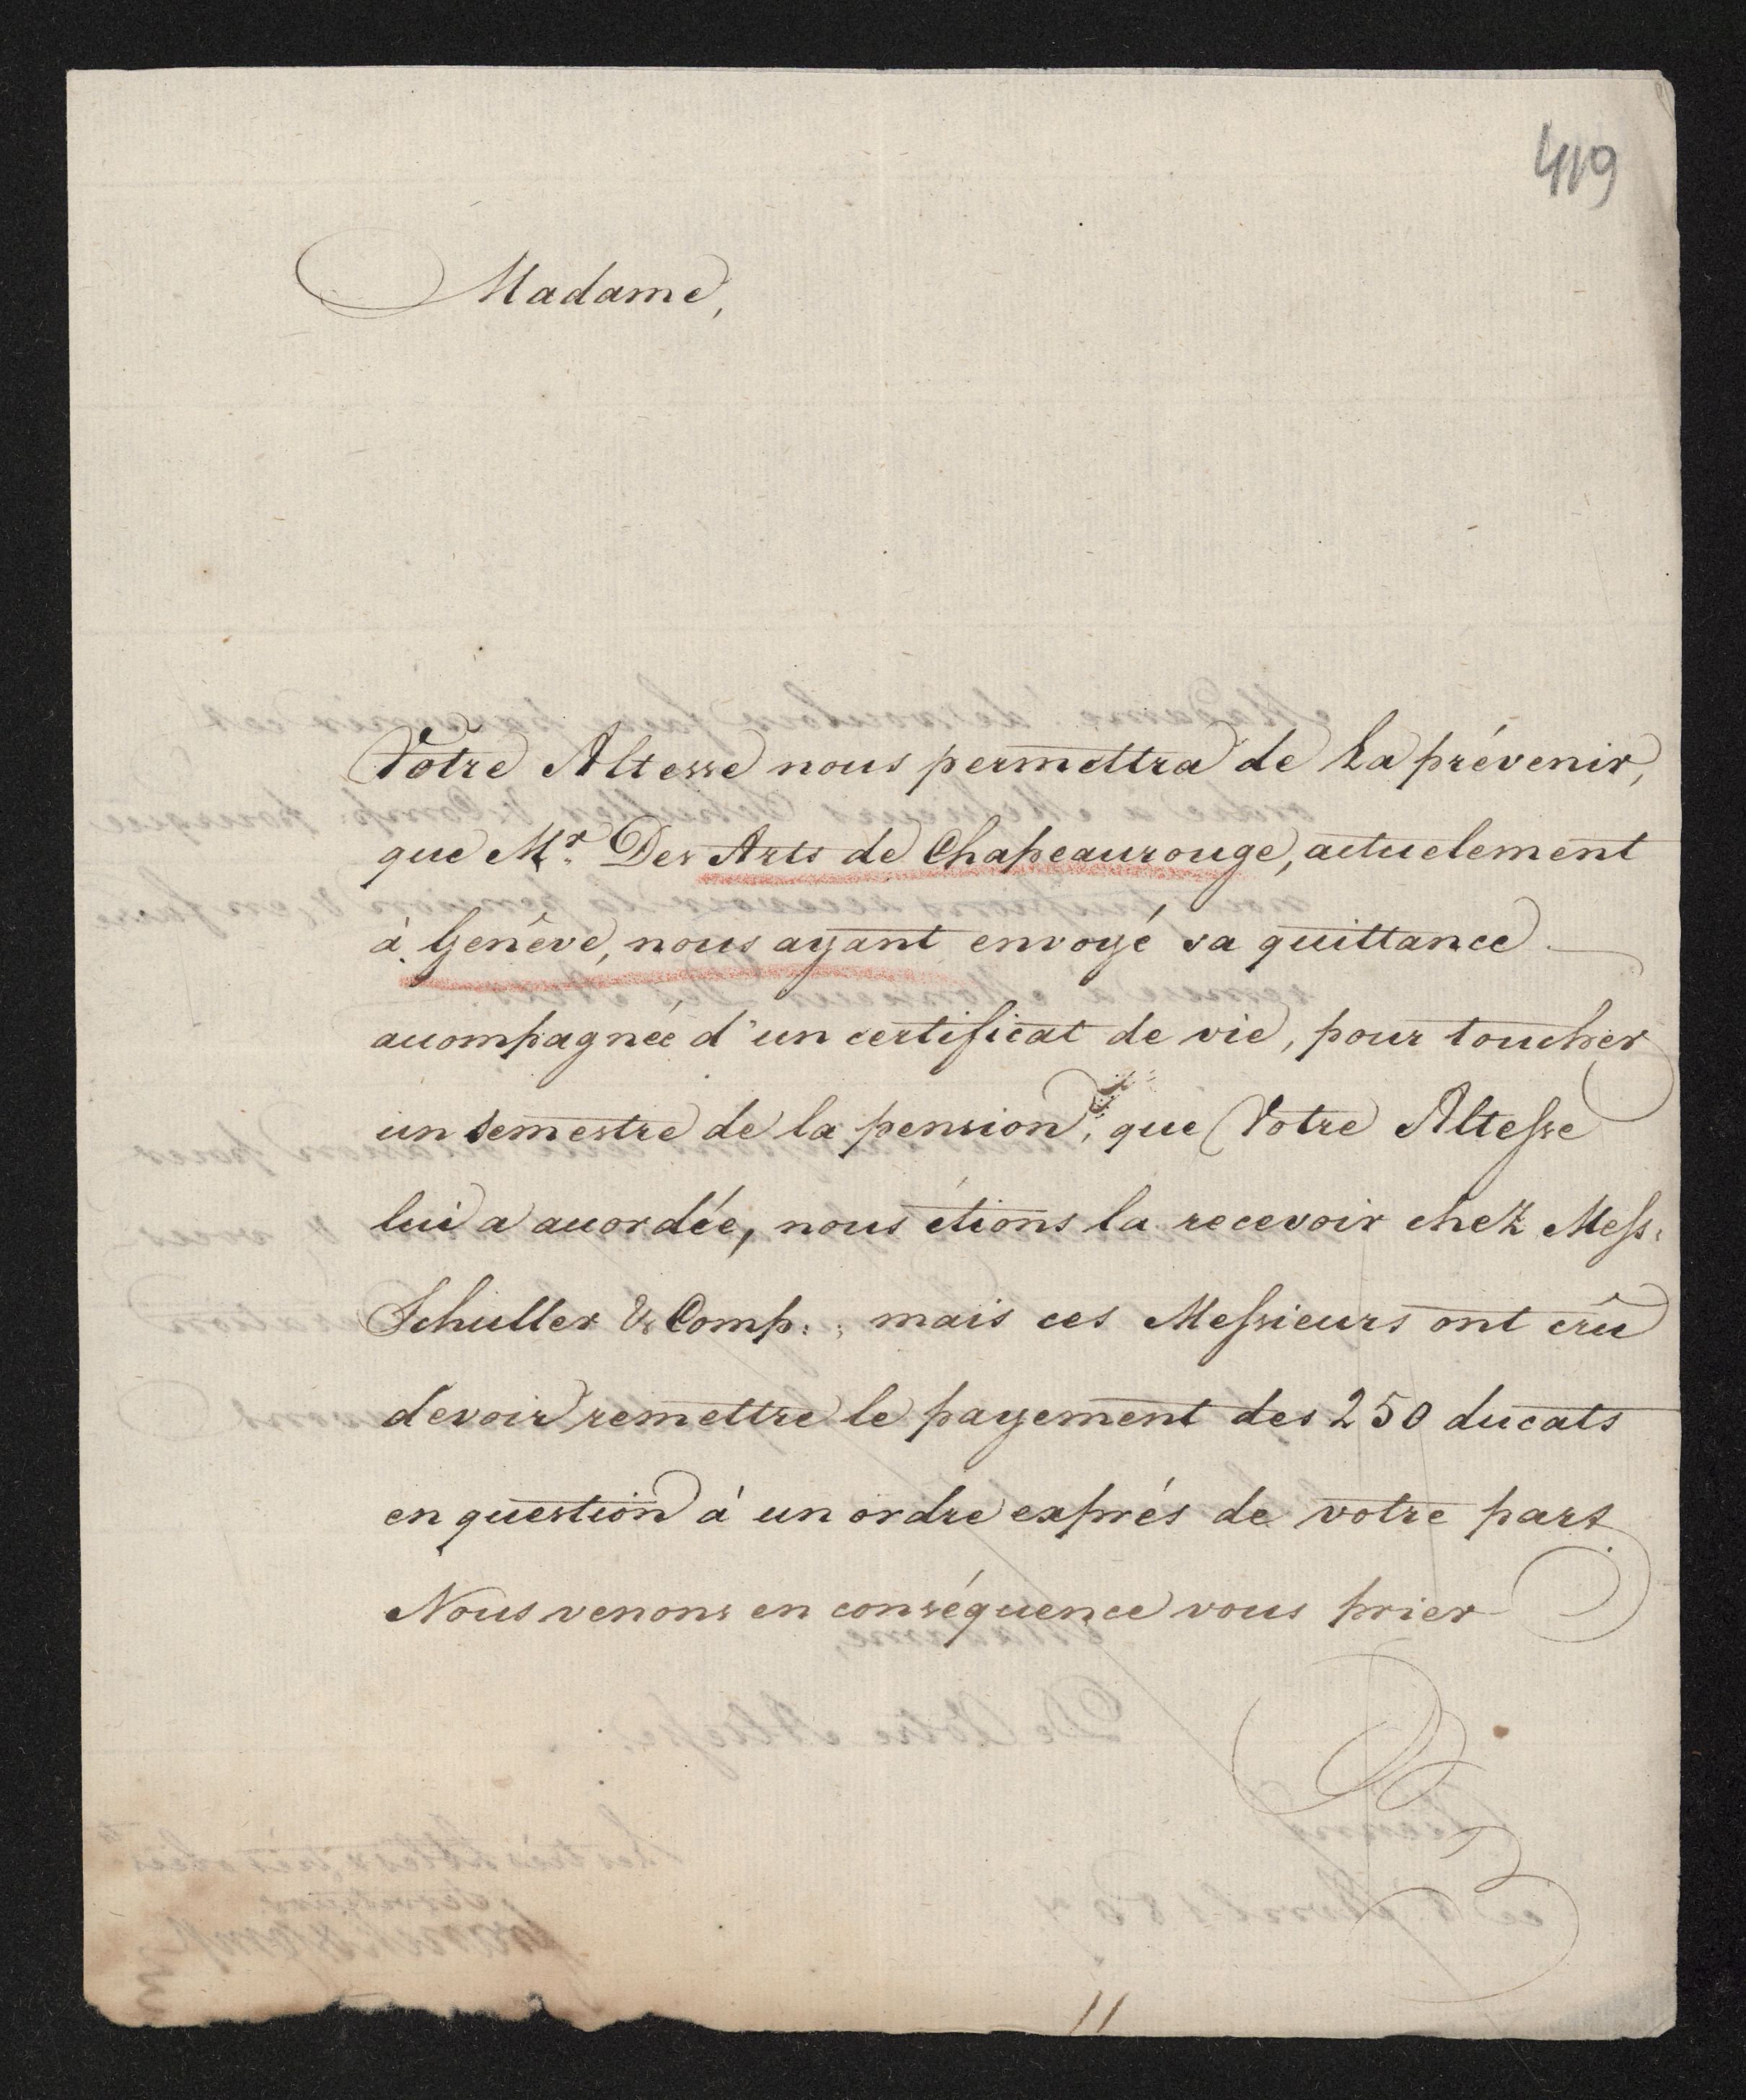 419
Madame,
Votre Altesse nous permettra de La prévenir,
que Mr. Des Arts de Chapeaurouge, actuelement
à Genève, nous ayant envoyé sa quittance
accompagnée d'un certificat de vie, pour toucher
un semestre de la pension, que Votre Altesse
lui a accordée, nous étions la recevoir chez Mess:
Schuller & Comp:; mais ces Messieurs ont crû
devoir remettre le payement des 250 ducats
en question à un ordre exprés de votre part.
Nous venons en conséquence vous prier